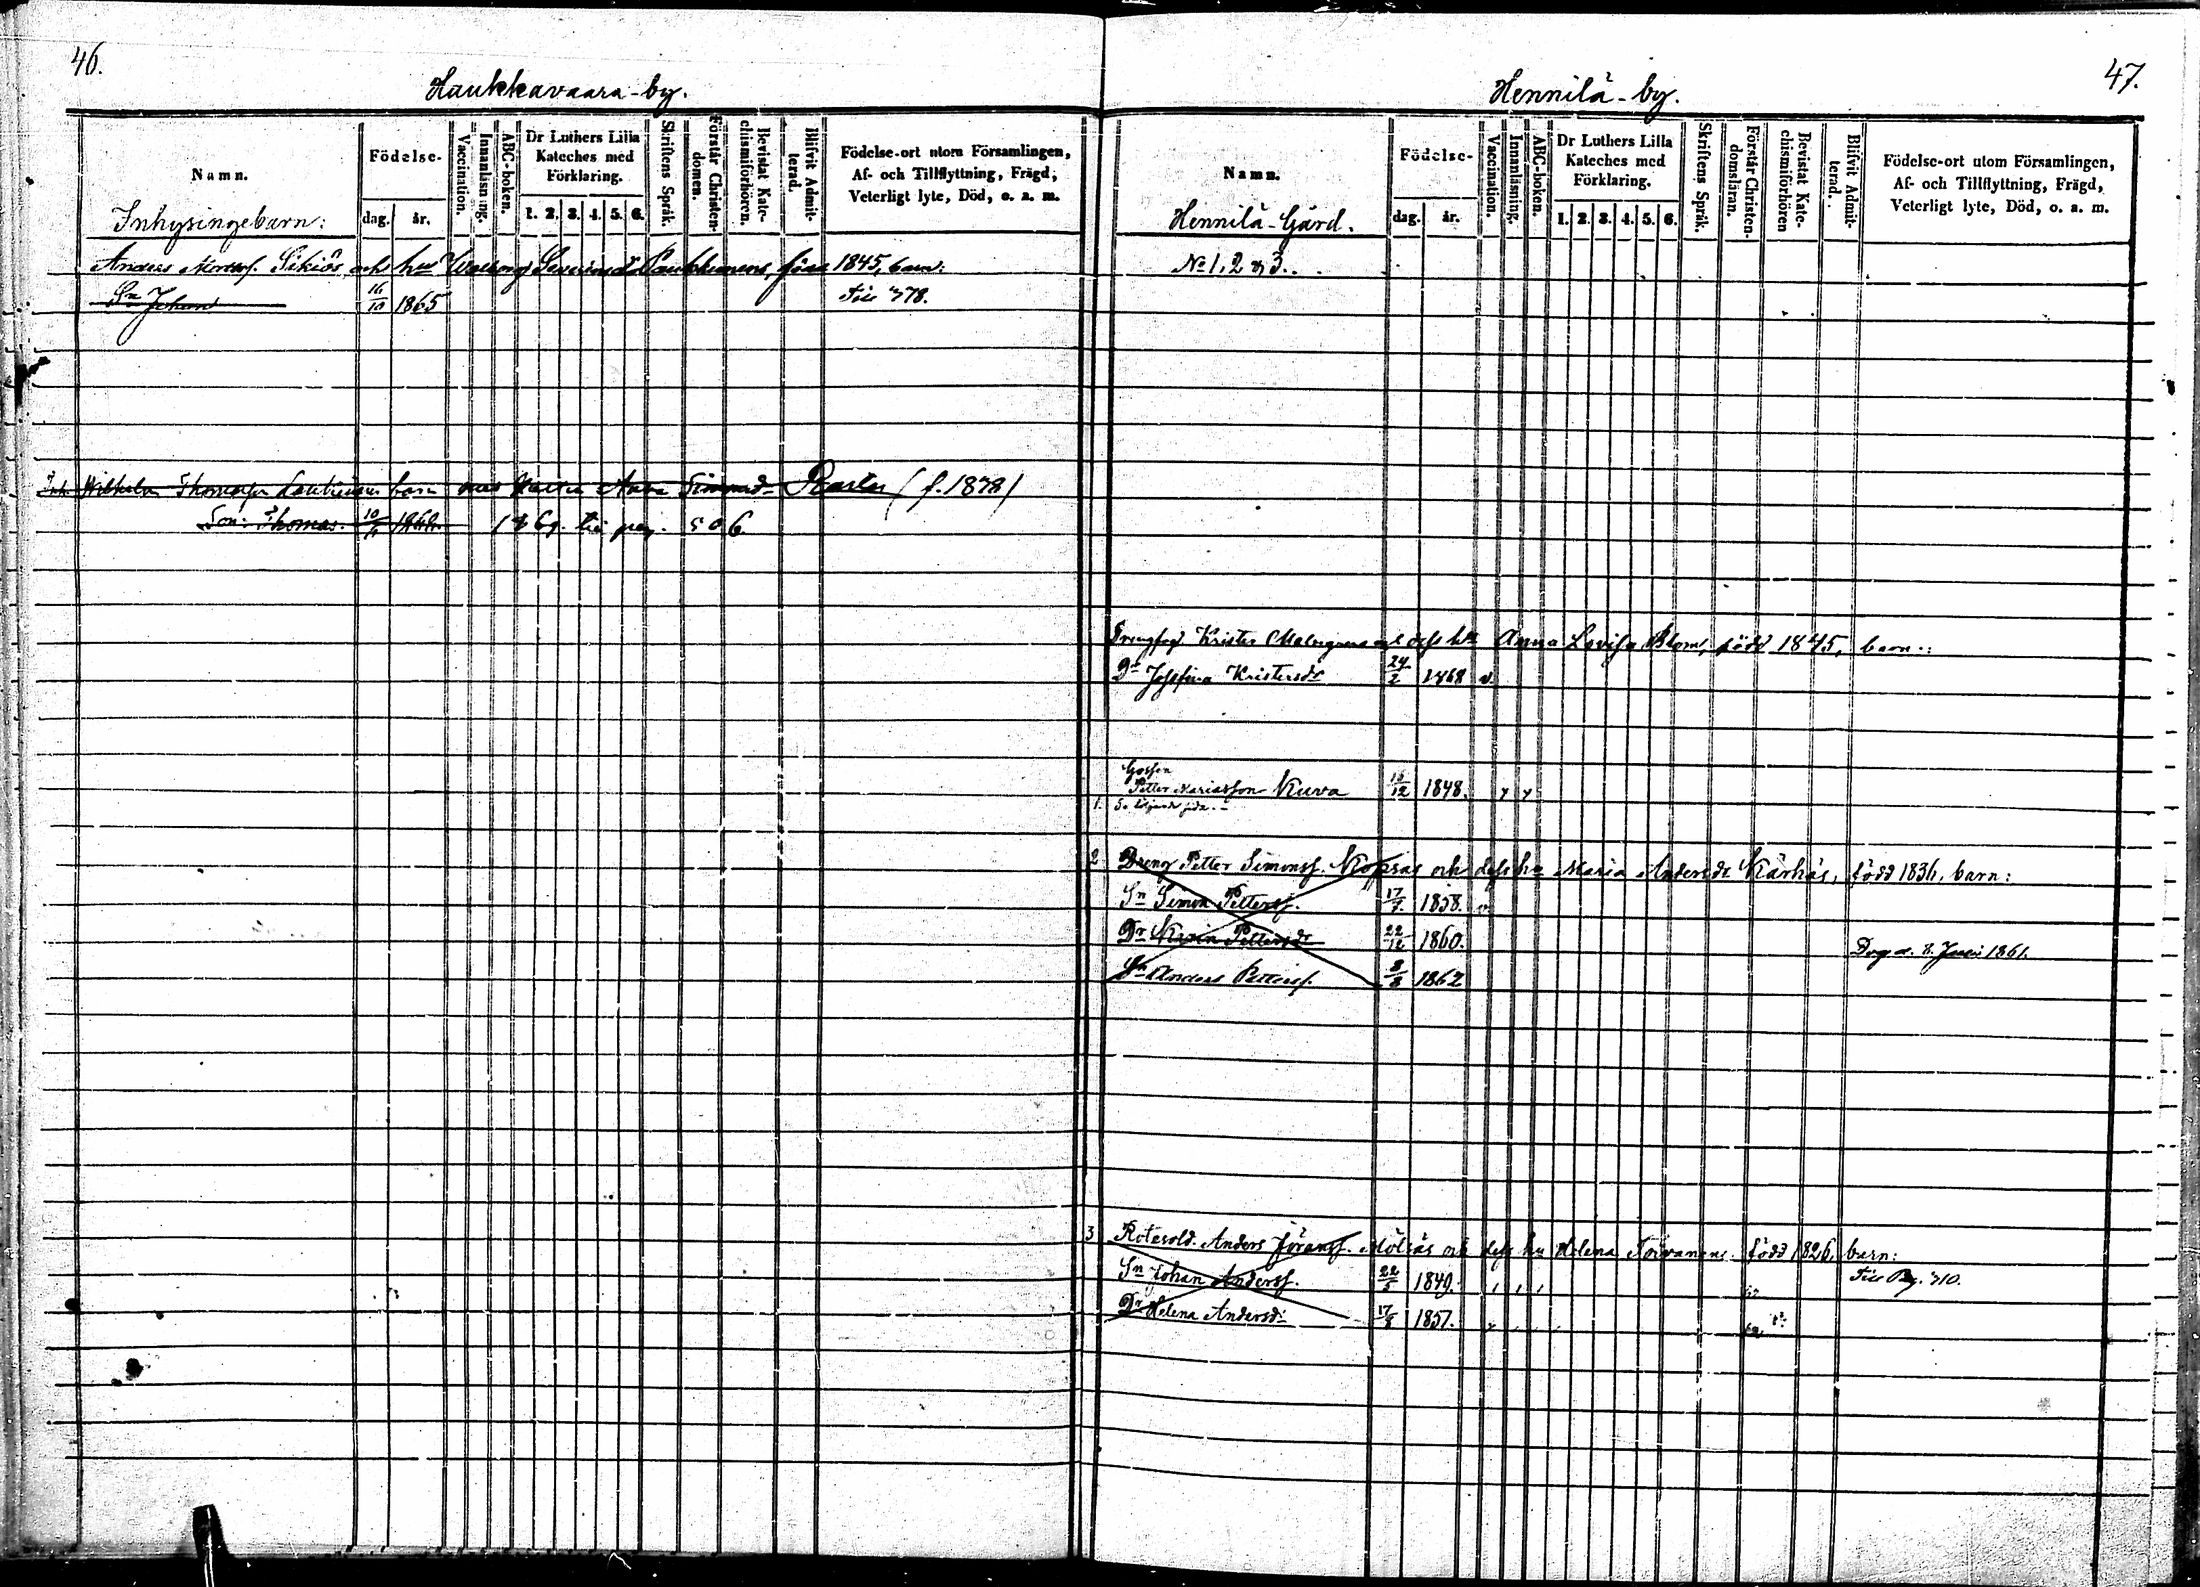 46.
Haukkavaara-by.
Namn.
Födelse-
dag. år.
Vaccination.
Innanläsning.
ABC-boken.
Dr Luthers Lilla Kateches med Förklaring.
1. 2. 3. 4. 5. 6.
Skriftens Språk.
Förstår Christendomen.
Bevistat Katechismiförhören.
Blifvit Admitterad.
Födelse-ort utom Församlingen, Af- och Tillflyttning, Frägd, Veterligt lyte, Död, o. a. m.
Inhysingebarn:
Anders Mortsf. Sikiös och hu Walborg Severinsdr Paukkunens, född 1845, barn:
Sn Johan 16/10 1865 Till 378.
Inh. Wilhelm Thomasson barn med Anna Simonsd. (f. 1878)
Son: Thomas. 10/ 1868. 1869. till pag. 506.
47.
Hennilä-by.
Namn.
Födelse-
dag. år.
Vaccination.
Innanläsning.
ABC-boken.
Dr Luthers Lilla Kateches med Förklaring.
1. 2. 3. 4. 5. 6.
Skriftens Språk.
Förstår Christendomsläran.
Bevistat Katechismiförhören
Blifvit Admitterad.
Födelse-ort utom Församlingen, Af- och Tillflyttning, Frägd, Veterligt lyte, Död, o. a. m.
Hennilä-Gård.
No 1, 2 & 3.
Krister Malmgrens och dess hu Anna Lovisa Blom, född 1845, barn:
Dr Josefina Kristersdr 24/2 1868 v.
Gossen
1. Petter Mariasson Kuva 15/12 1848.
2 Dreng Petter Simonsf. Kopsas och dess hu Maria Andersdr Kärhäs, född 1836, barn:
Sn Simon Pettersf. 17/7. 1858. v.
Dr Karin Pettersdr 22/12 1860. Dog d. 8. Juni 1861.
Sn Anders Pettersf. 8/8 1862
3 Rotesold. Anders Jöransf. Mölsäs och dess hu Helena Toivanens. född 1826, barn:
Sn Johan Andersf. 22/5 1849. Till Pag. 310.
Dr Helena Andersdr 17/8 1857.